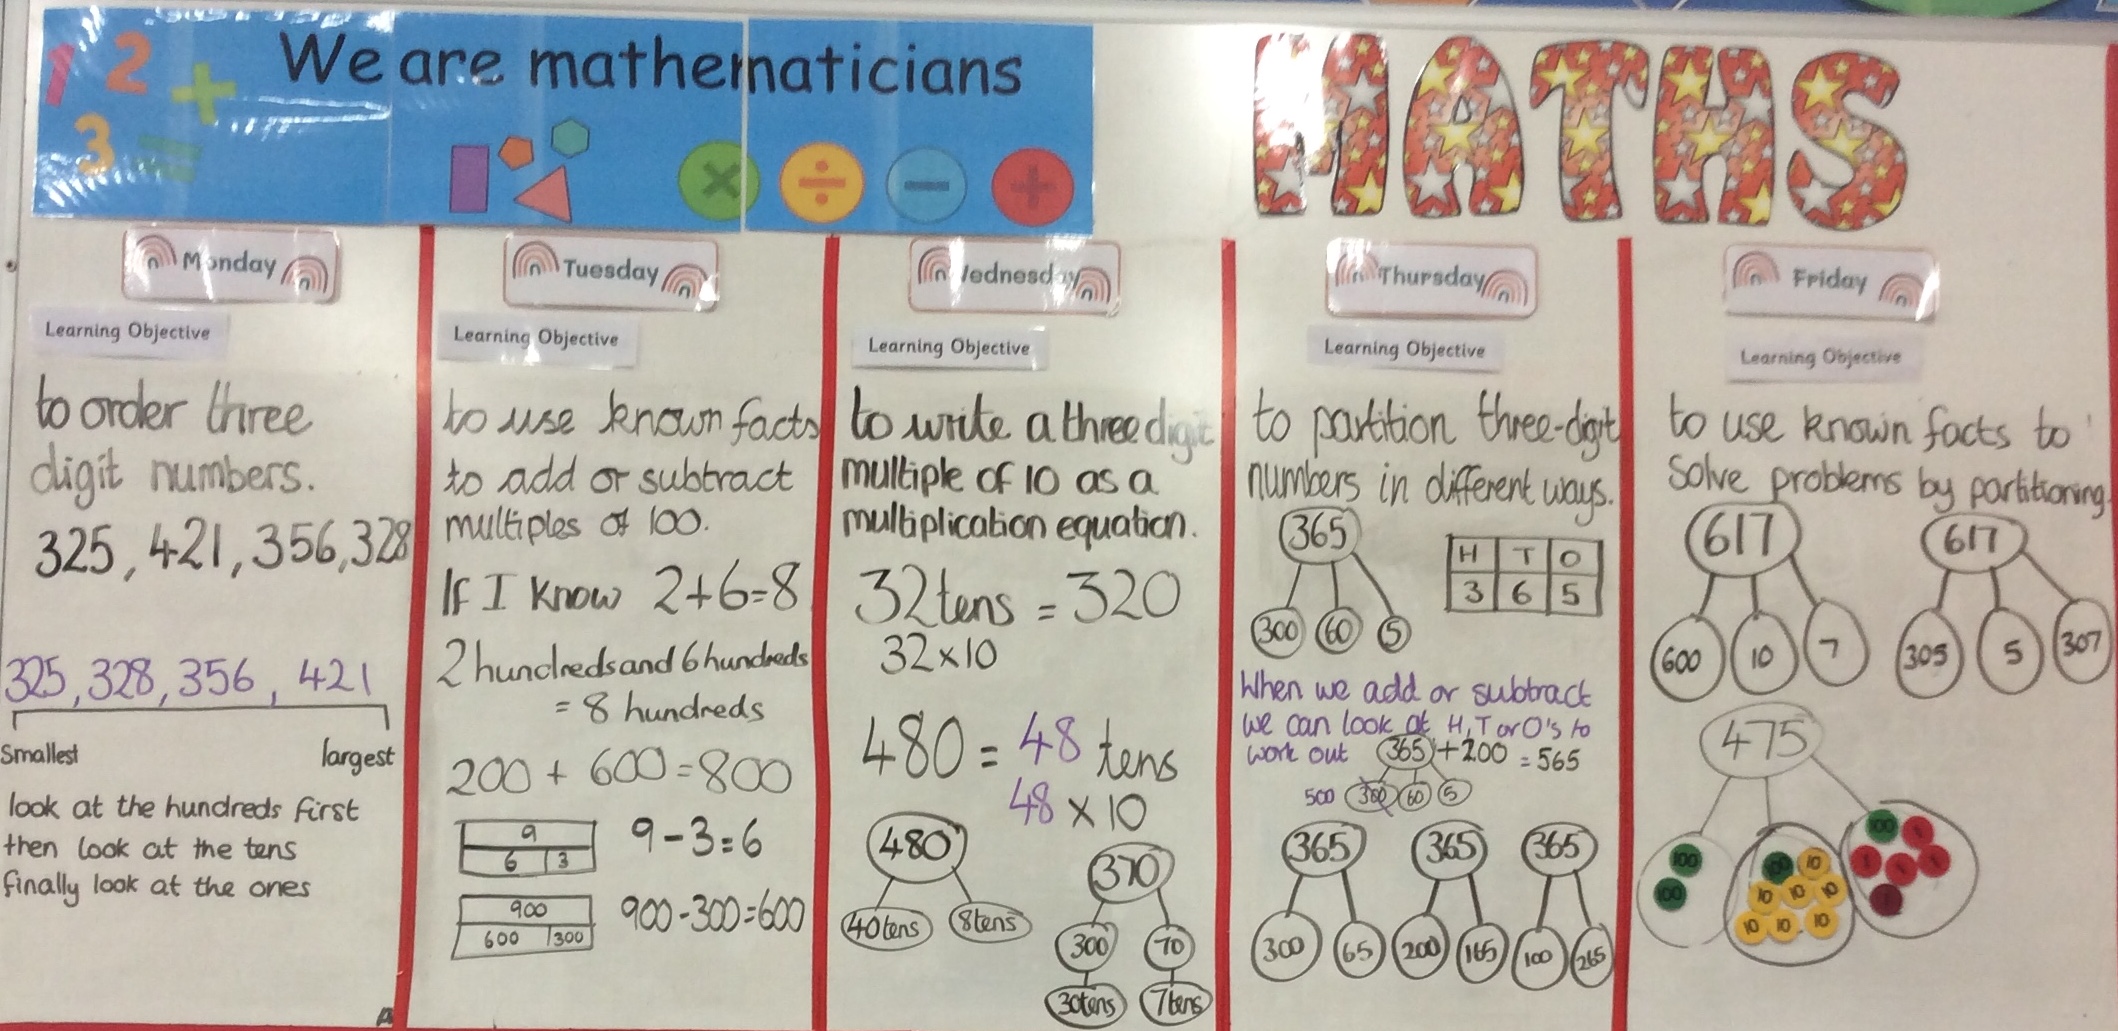 1 2 + 3 =
We are mathematicians
× ÷ − +
MATHS
Monday
Learning Objective
to order three
digit numbers.
325, 421, 356, 328
325, 328, 356, 421
Smallest largest
look at the hundreds first
then look at the tens
finally look at the ones
Tuesday
Learning Objective
to use known facts
to add or subtract
multiples of 100.
If I know 2+6=8
2 hundreds and 6 hundreds
= 8 hundreds
200 + 600 = 800
9
6 3
9-3=6
900
600 300
900-300=600
Wednesday
Learning Objective
to write a three digit
multiple of 10 as a
multiplication equation.
32 tens = 320
32 x 10
480 = 48 tens
48 x 10
480
40 tens 8 tens
370
300 70
30 tens 7 tens
Thursday
Learning Objective
to partition three-digit
numbers in different ways.
365
300 60 5
H T O
3 6 5
When we add or subtract
we can look at H, T or O's to
work out 365 + 200 = 565
500 300 60 5
365 365 365
300 65 200 165 100 265
Friday
Learning Objective
to use known facts to
solve problems by partitioning.
617
600 10 7
617
305 5 307
475
100
100
100 10
10 10 10
10 10 10
100 1
1 1 1
1